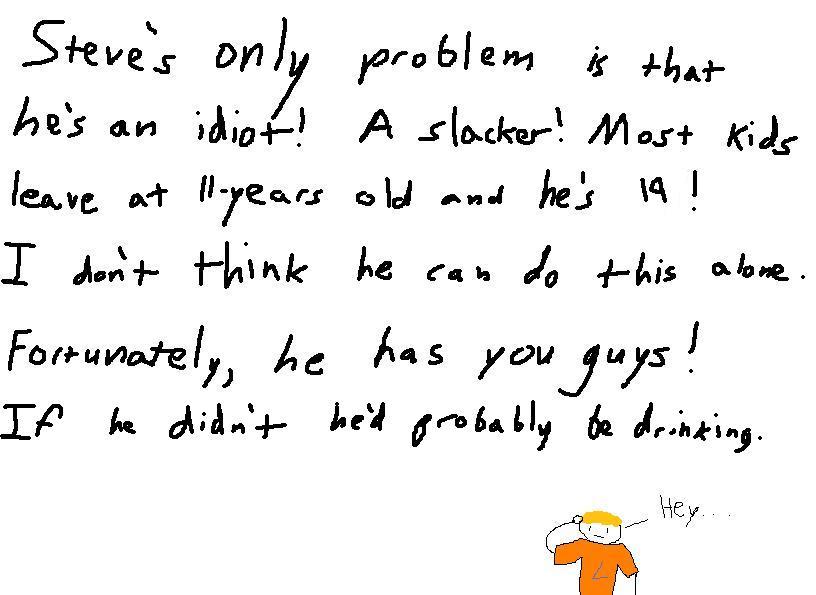 Steve's only problem is that
he's an idiot! A slacker! Most kids
leave at 11-years old and he's 19!
I don't think he can do this alone.
Fortunately, he has you guys!
If he didn't he'd probably be drinking.
Hey...